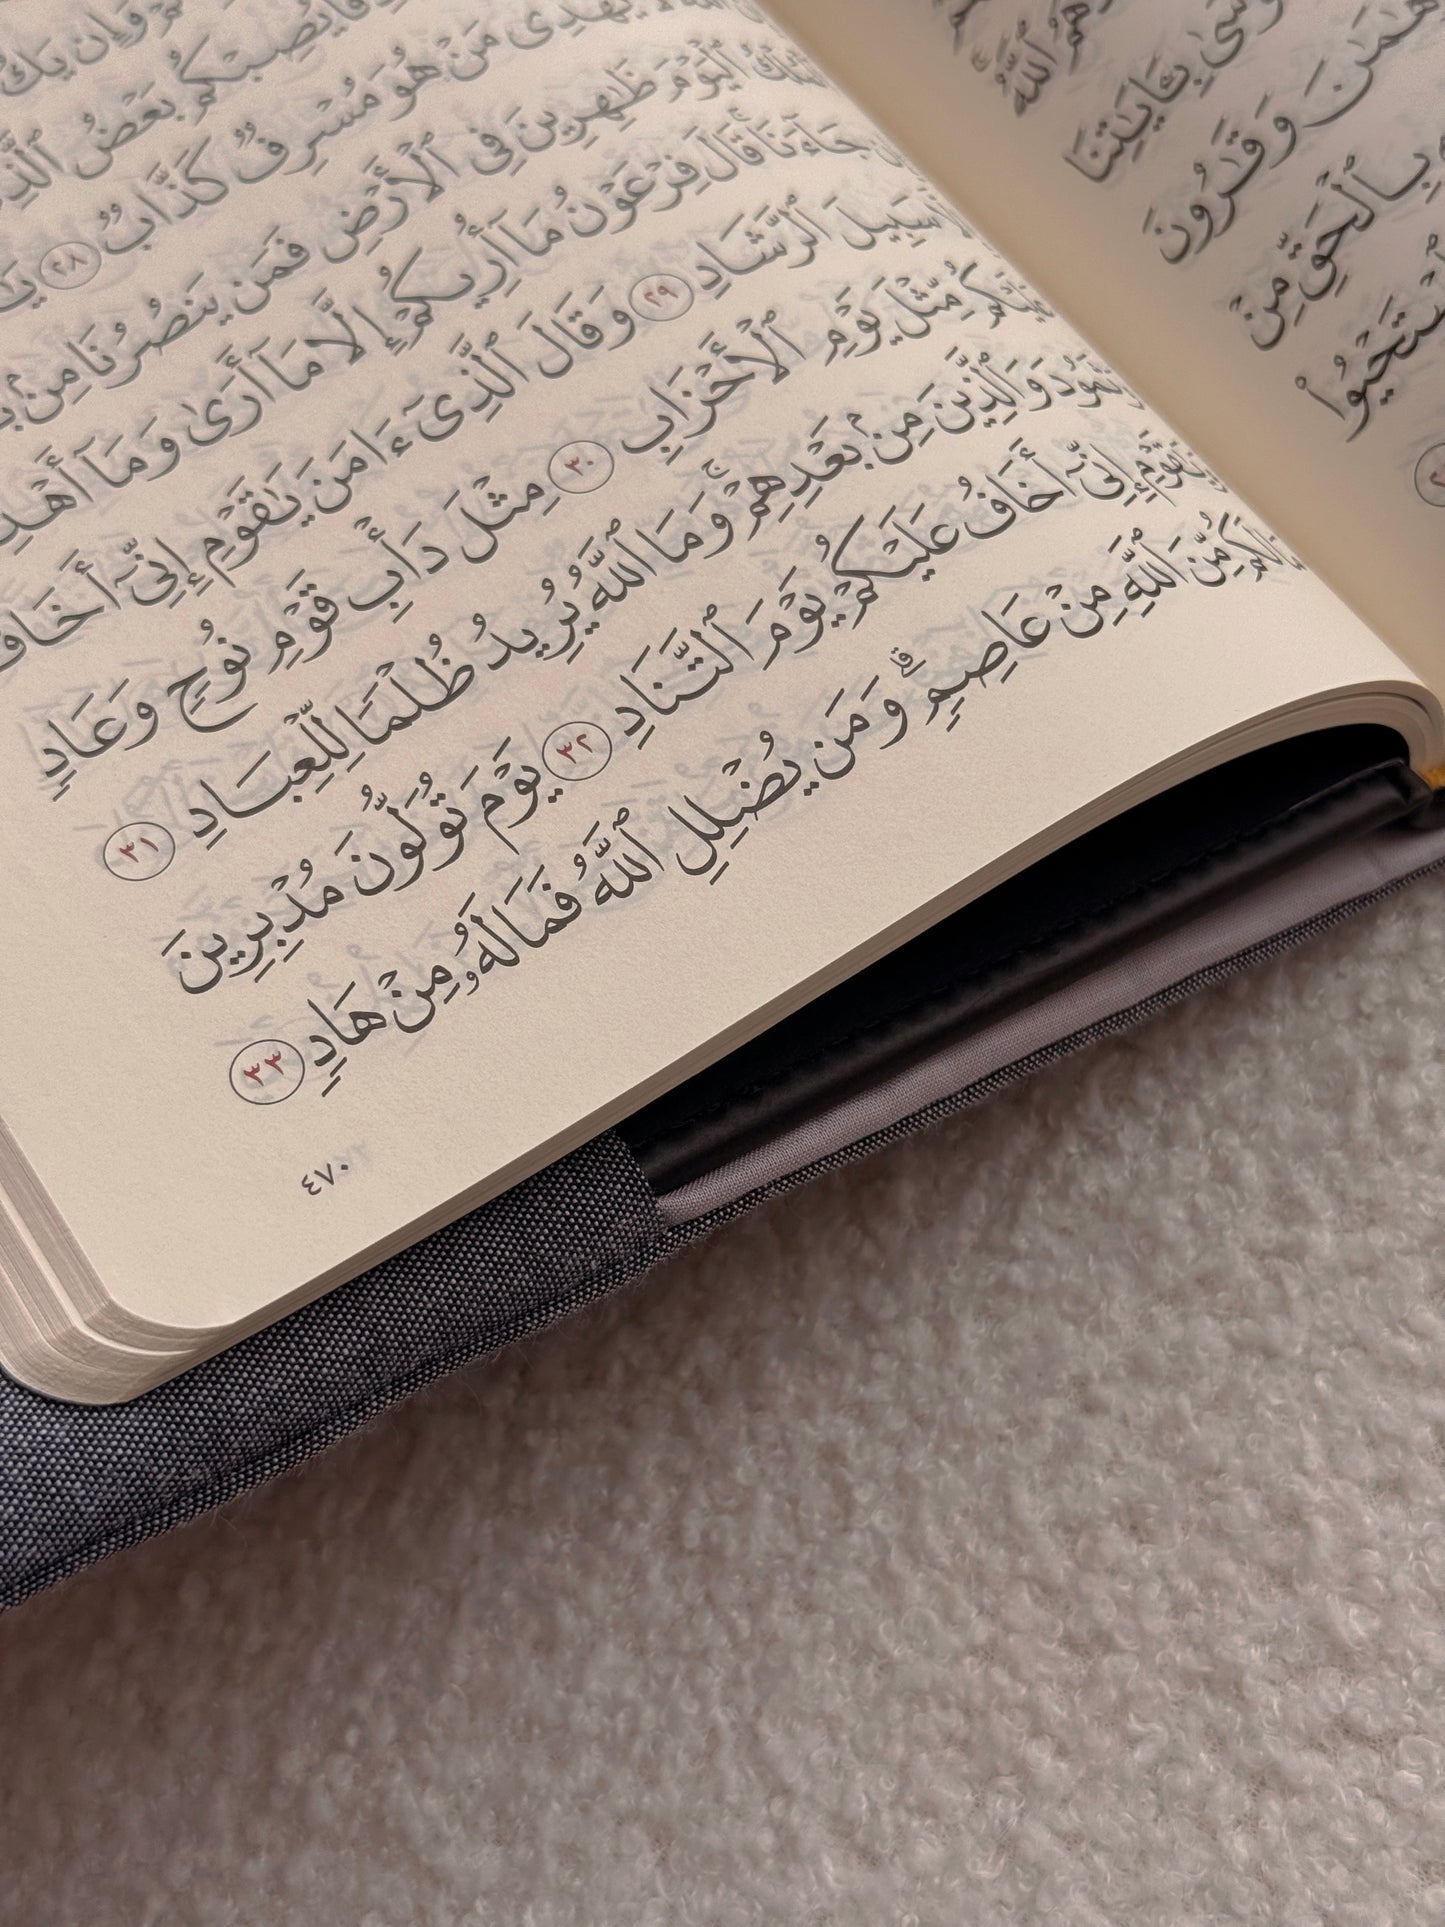 ٱللَّهُ
بِـَٔايَـٰتِنَا
وَقَـٰرُونَ
بِٱلْحَقِّ مِنْ
وَإِن يَكُ
يُصِبْكُم بَعْضُ
يَهْدِى مَنْ هُوَ مُسْرِفٌ كَذَّابٌ ٢٨
ٱلْيَوْمَ ظَـٰهِرِينَ فِى ٱلْأَرْضِ فَمَن يَنصُرُنَا مِنۢ
جَآءَنَا قَالَ فِرْعَوْنُ مَآ أُرِيكُمْ إِلَّا مَآ أَرَىٰ وَمَآ
سَبِيلَ ٱلرَّشَادِ ٢٩ وَقَالَ ٱلَّذِىٓ ءَامَنَ يَـٰقَوْمِ إِنِّىٓ أَخَافُ
عَلَيْكُم مِّثْلَ يَوْمِ ٱلْأَحْزَابِ ٣٠ مِثْلَ دَأْبِ قَوْمِ نُوحٍ وَعَادٍ
وَثَمُودَ وَٱلَّذِينَ مِنۢ بَعْدِهِمْ ۚ وَمَا ٱللَّهُ يُرِيدُ ظُلْمًا لِّلْعِبَادِ ٣١
وَيَـٰقَوْمِ إِنِّىٓ أَخَافُ عَلَيْكُمْ يَوْمَ ٱلتَّنَادِ ٣٢ يَوْمَ تُوَلُّونَ مُدْبِرِينَ
لَكُم مِّنَ ٱللَّهِ مِنْ عَاصِمٍ ۗ وَمَن يُضْلِلِ ٱللَّهُ فَمَا لَهُۥ مِنْ هَادٍ ٣٣
٤٧٠